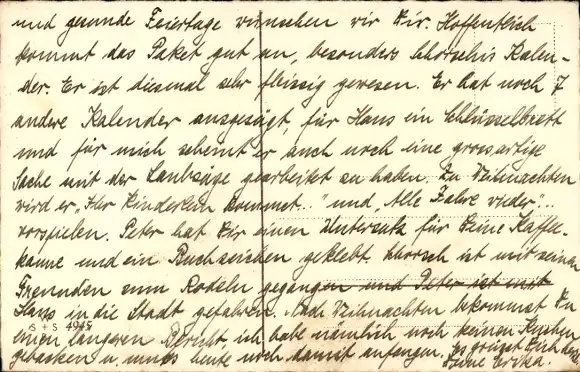 und gesunde Feiertage wünschen wir Dir. Hoffentlich
kommt das Paket gut an, besonders Schorschis Kalen-
der. Er ist diesmal sehr fleissig gewesen. Er hat noch 7
andere Kalender ausgesägt, für Hans ein Schlüsselbrett
und für mich scheint er auch noch eine grossartige
Sache mit der Laubsäge gearbeitet zu haben. Zu Weihnachten
wird er „Ihr Kinderlein kommet..." und „Alle Jahre wieder"...
vorspielen. Peter hat Dir einen Untersatz für Deine Kaffee-
kanne und ein Buchzeichen geklebt. Schorsch ist mit seinen
Freunden zum Rodeln gegangen und Peter ist mit
Hans in die Stadt gefahren. Nach Weihnachten bekommst Du
einen längeren Bericht, ich habe nämlich noch keinen Kuchen
gebacken u. muss heute noch damit anfangen. Es grüsst Dich
Deine Erika.
S + S 4945